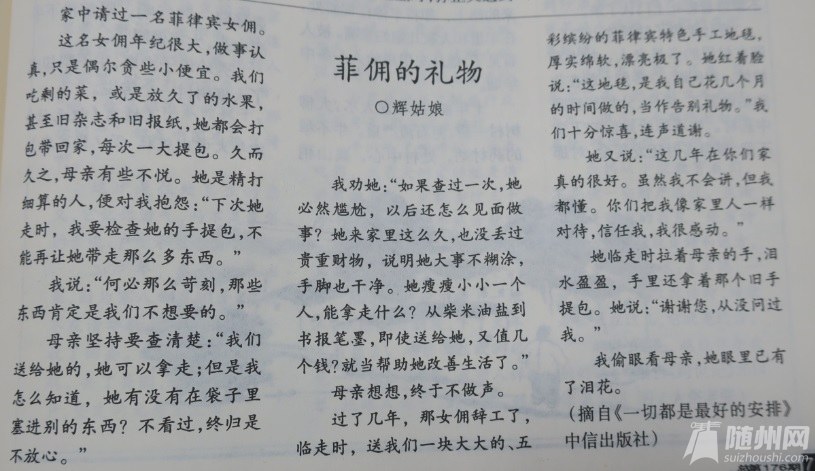 家中请过一名菲律宾女佣。
这名女佣年纪很大，做事认
真，只是偶尔贪些小便宜。我们
吃剩的菜，或是放久了的水果，
甚至旧杂志和旧报纸，她都会打
包带回家，每次一大提包。久而
久之，母亲有些不悦。她是精打
细算的人，便对我抱怨：“下次她
走时，我要检查她的手提包，不
能再让她带走那么多东西。”
我说：“何必那么苛刻，那些
东西肯定是我们不想要的。”
母亲坚持要查清楚：“我们
送给她的，她可以拿走；但是我
怎么知道，她有没有在袋子里
塞进别的东西？不看过，终归是
不放心。”
菲佣的礼物
○辉姑娘
我劝她：“如果查过一次，她
必然尴尬，以后还怎么见面做
事？她来家里这么久，也没丢过
贵重财物，说明她大事不糊涂，
手脚也干净。她瘦瘦小小一个
人，能拿走什么？从柴米油盐到
书报笔墨，即使送给她，又值几
个钱？就当帮助她改善生活了。”
母亲想想，终于不做声。
过了几年，那女佣辞工了，
临走时，送我们一块大大的、五
彩缤纷的菲律宾特色手工地毯，
厚实绵软，漂亮极了。她红着脸
说：“这地毯，是我自己花几个月
的时间做的，当作告别礼物。”我
们十分惊喜，连声道谢。
她又说：“这几年在你们家
真的很好。虽然我不会讲，但我
都懂。你们把我像家里人一样
对待，信任我，我很感动。”
她临走时拉着母亲的手，泪
水盈盈，手里还拿着那个旧手
提包。她说：“谢谢您，从没问过
我。”
我偷眼看母亲，她眼里已有
了泪花。
（摘自《一切都是最好的安排》
中信出版社）
随州网
suizhoushi.com